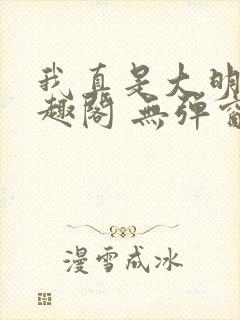 我真是大明
趣阁 無弹窗
漫雪成冰